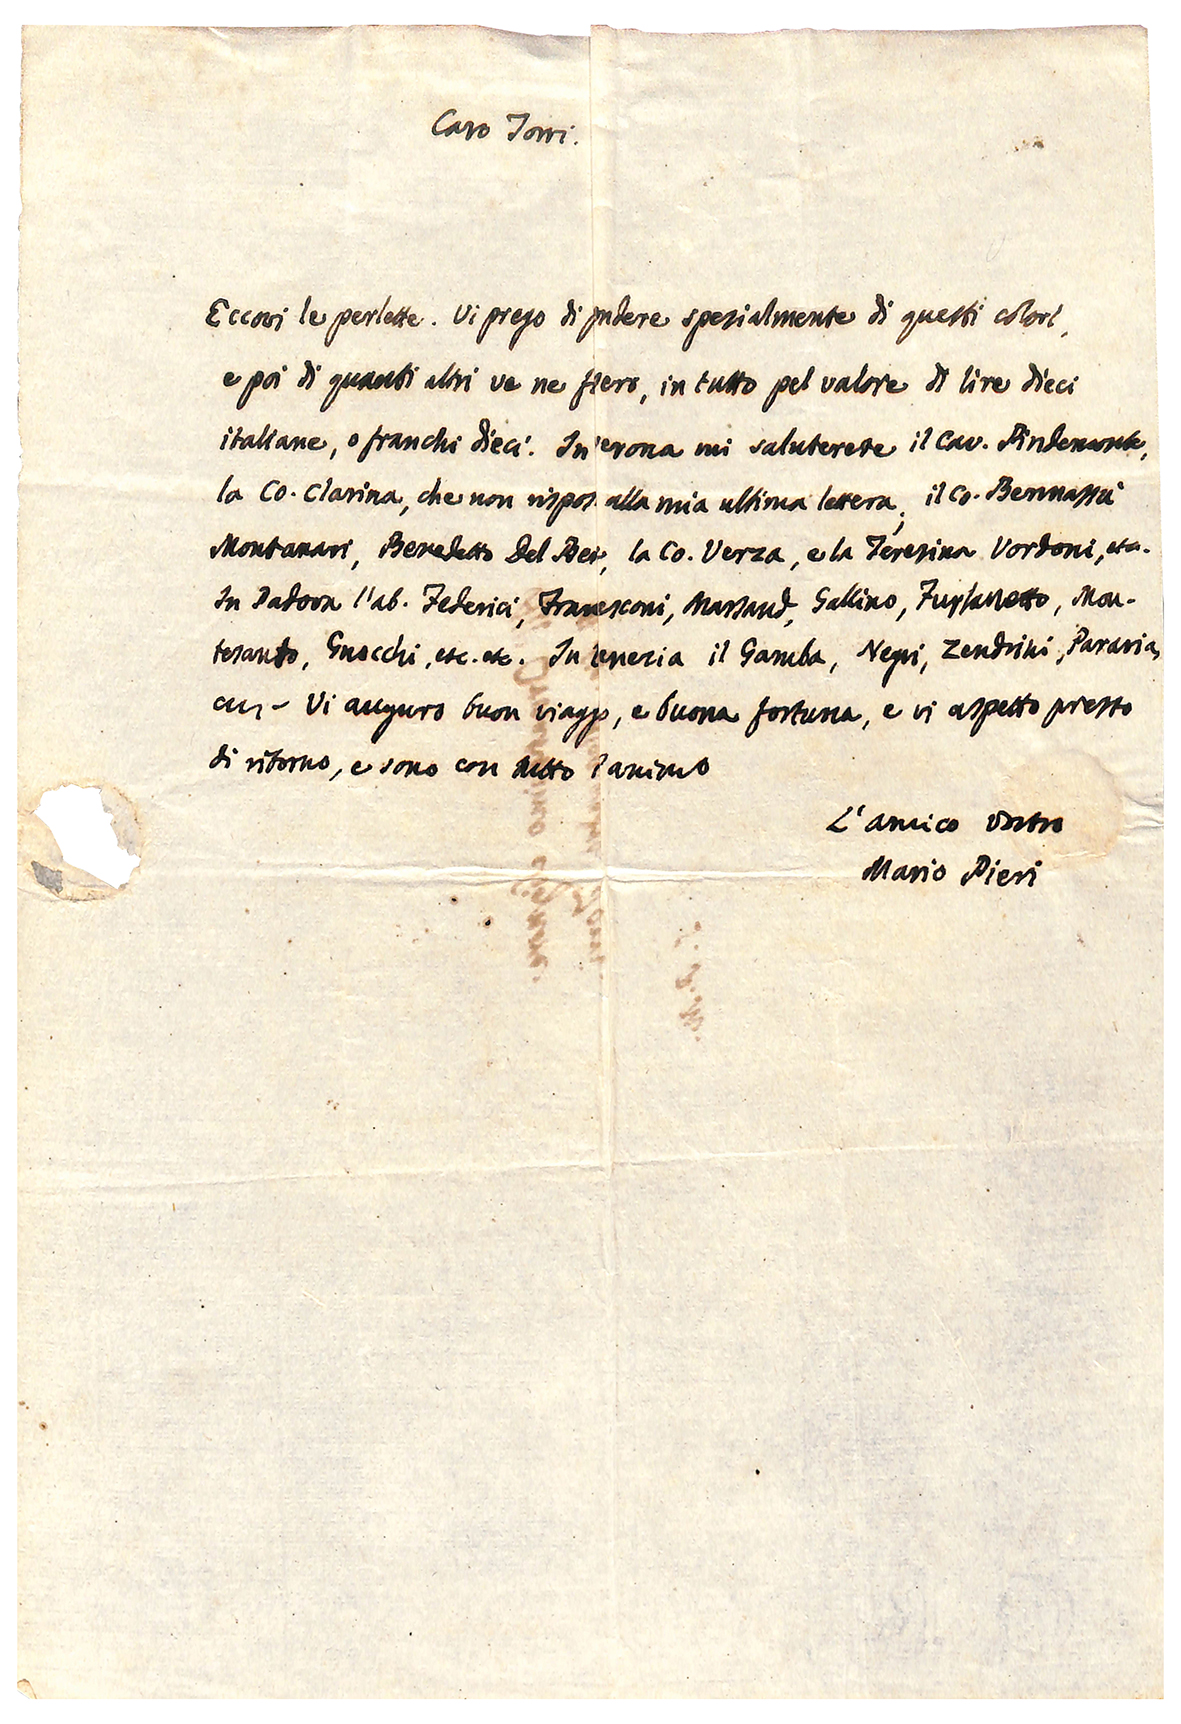 Caro Torri.
Eccovi le perlette. Vi prego di pndere spezialmente di questi colori,
e poi di quanti altri ve ne fiero, in tutto pel valore di lire dieci
italiane, o franchi dieci. In erona mi saluterete il Cav. Pindemonte,
la Co. Clarina, che non rispos alla mia ultima lettera, il Co. Bennassù
Montanari, Benedetto Del Bei, la Co. Verza, e la Teresina Vordoni, etc.
In Padova l'ab. Federici, Franesconi, Marsand, Gallino, Furlanetto, Mon-
tesanto, Gnocchi, etc. etc. In enezia il Gamba, Negri, Zendrini, Paravia,
Vi auguro buon viaggo, e buona fortuna, e vi aspetto presto
di ritorno, e sono con tutto l'animo
L'amico vostro
Mario Pieri